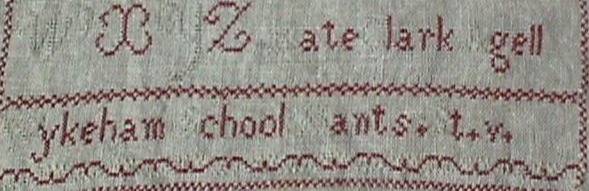 X Z ate lark gell
ykeham chool ants. t.v.